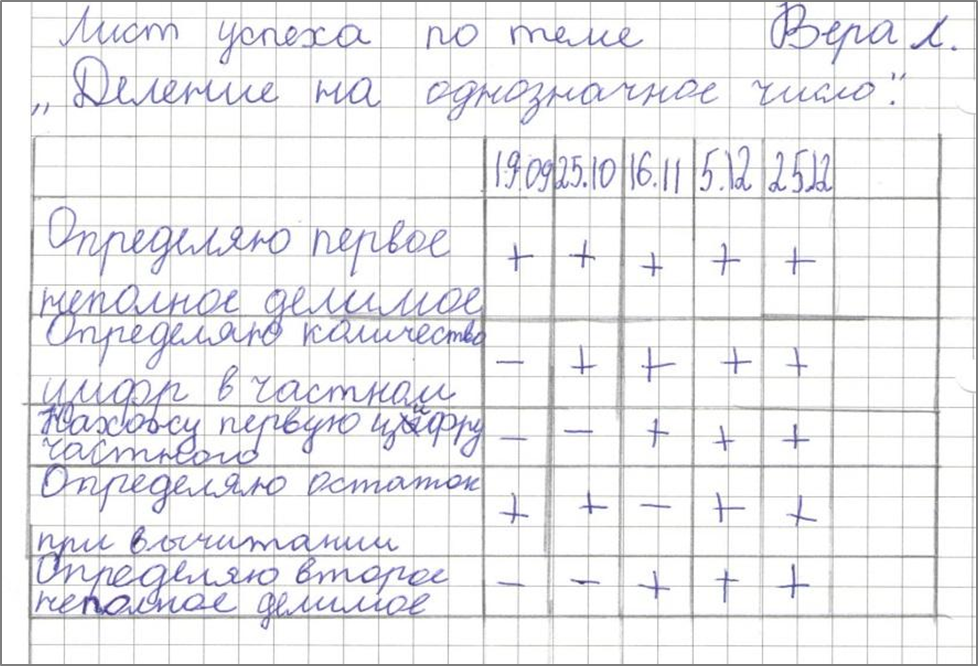 Лист успеха по теме Вера Л.
„Деление на однозначное число".
19.09 25.10 16.11 5.12 25.12
Определяю первое
неполное делимое + + + + +
Определяю количество
цифр в частном − + + + +
Нахожу первую цифру
частного − − + + +
Определяю остаток
при вычитании + + − + +
Определяю второе
неполное делимое − − + + +